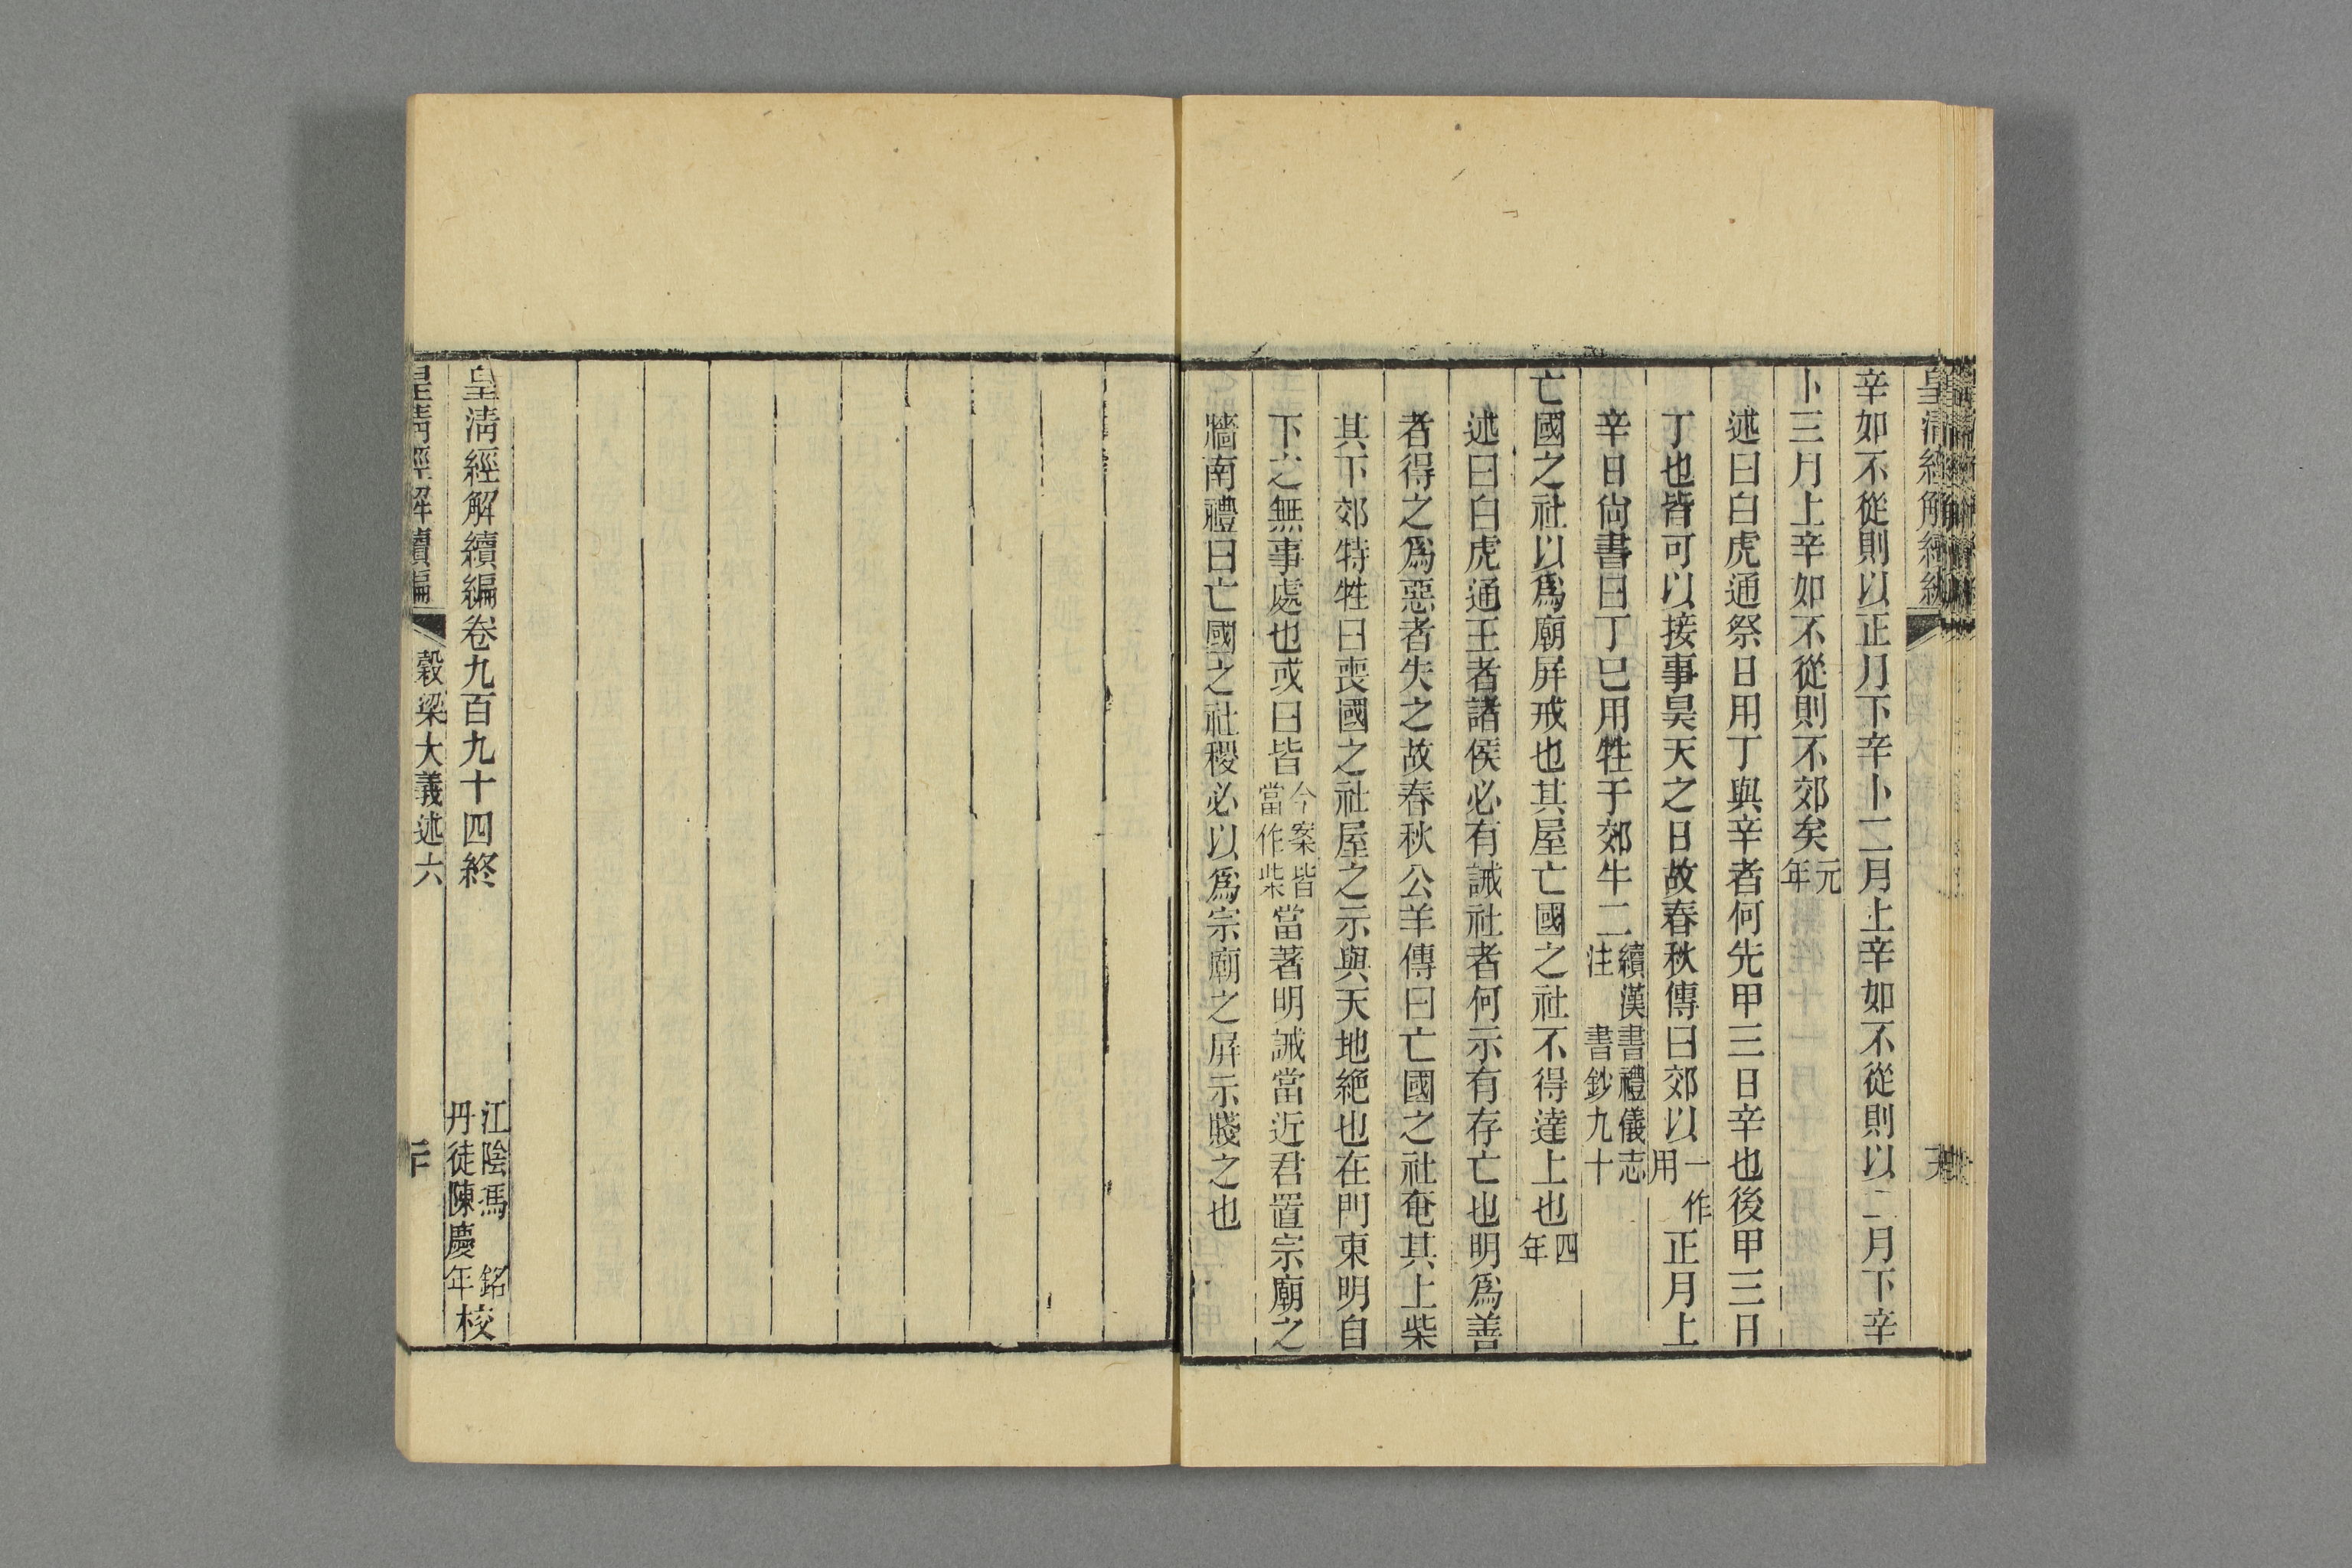 皇清經解續編
辛如不從則以正月下辛卜二月上辛如不從則以二月下辛
卜三月上辛如不從則不郊矣元年
述曰白虎通祭日用丁與辛者何先甲三日辛也後甲三日
丁也皆可以接事昊天之日故春秋傳曰郊以一作用正月上
辛日尙書曰丁巳用牲于郊牛二續漢書禮儀志注 書鈔九十
亡國之社以爲廟屏戒也其屋亡國之社不得達上也四年
述曰白虎通王者諸侯必有誡社者何示有存亡也明爲善
者得之爲惡者失之故春秋公羊傳曰亡國之社奄其上柴
其下郊特牲曰喪國之社屋之示與天地絶也在門東明自
下之無事處也或曰皆今案皆當作柴當著明誡當近君置宗廟之
牆南禮曰亡國之社稷必以爲宗廟之屏示賤之也
皇清經解續編卷九百九十四終
江陰馮 銘
丹徒陳慶年校
皇清經解續編 穀梁大義述六